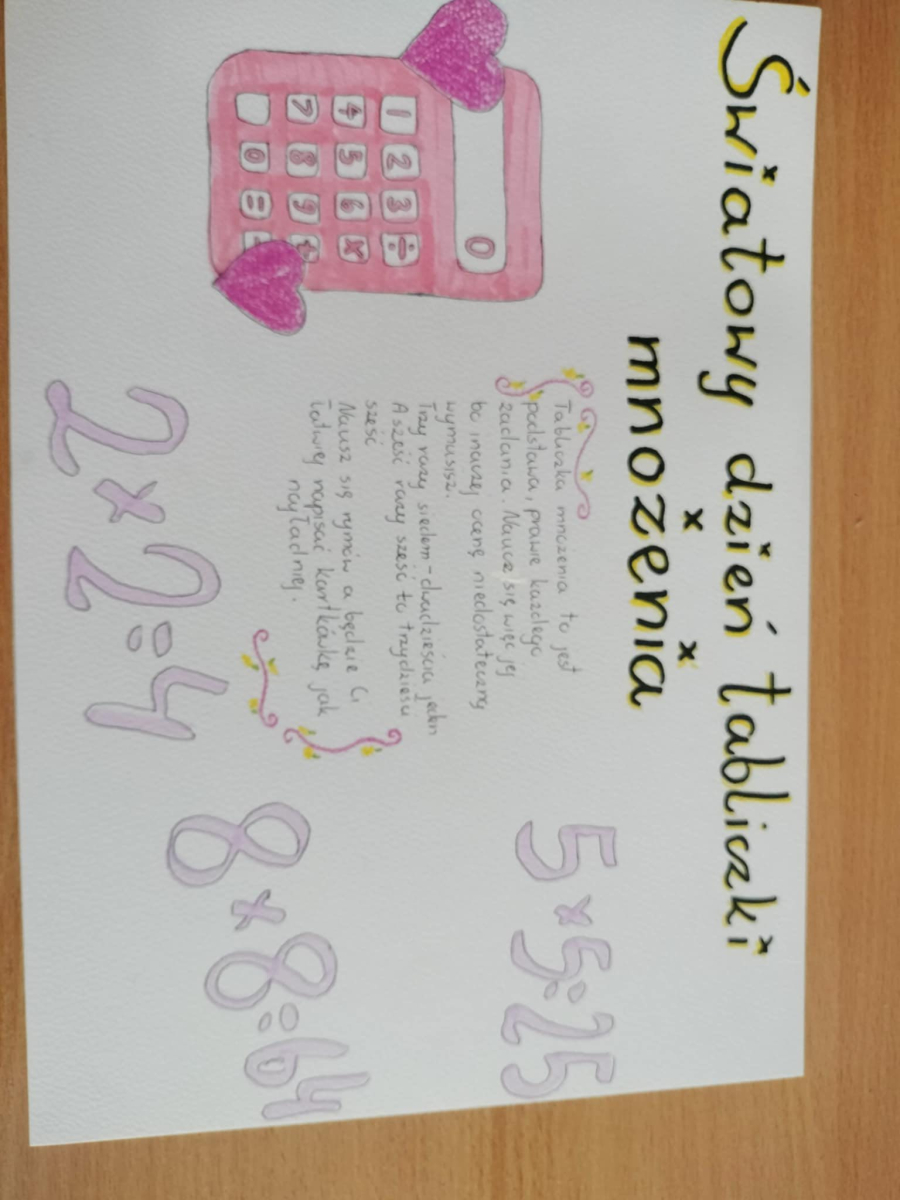 Światowy dzień tabliczki
mnożenia
0
1 2 3 ÷
4 5 6 x
7 8 9 +
0 =
Tabliczka mnożenia to jest
podstawa, prawie każdego
zadania. Naucz się więc jej
bo inaczej ocenę niedostateczny
wymusisz.
Trzy razy siedem - dwadzieścia jeden
A sześć razy sześć to trzydzieści
sześć
Nausz się rymów a będzie Ci
łatwiej napisać kartkówkę jak
najładniej.
5 x 5 = 25
2 x 2 = 4
8 x 8 = 64